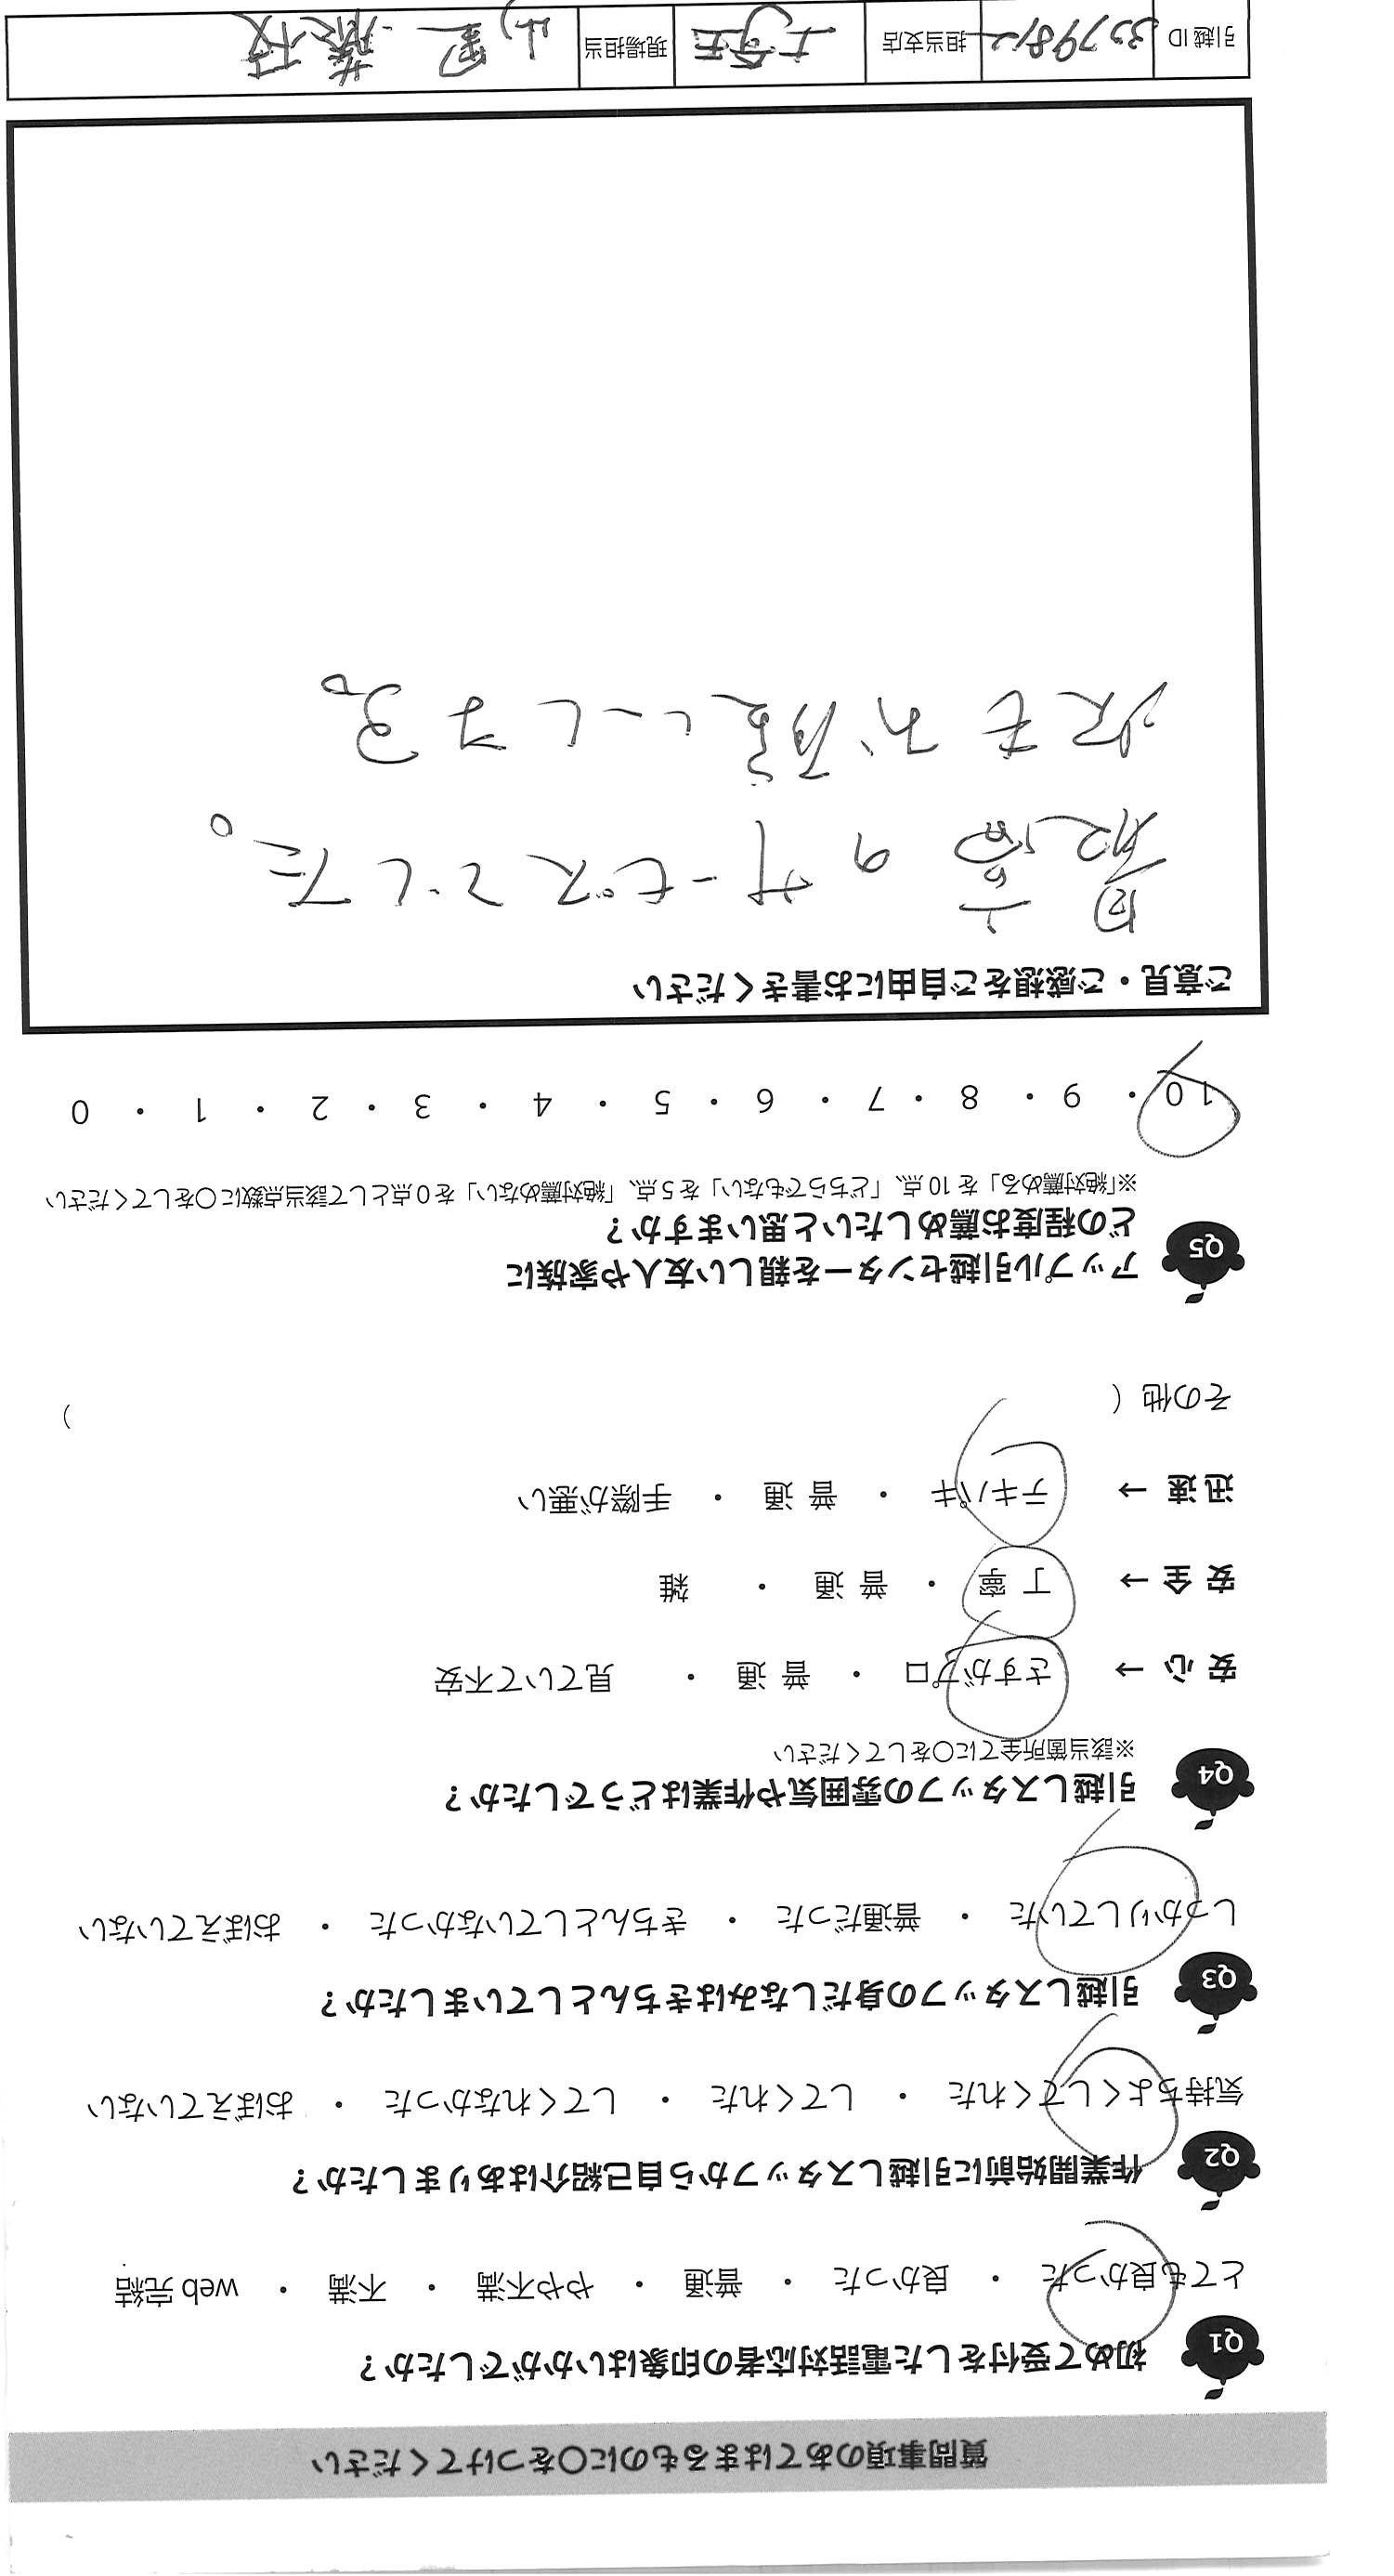 質問事項のあてはまるものに〇をつけてください
Q1 初めて受付をした電話対応者の印象はいかがでしたか？
とても良かった ・ 良かった ・ 普通 ・ やや不満 ・ 不満 ・ web 完結
Q2 作業開始前に引越しスタッフから自己紹介はありましたか？
気持ちよくしてくれた ・ してくれた ・ してくれなかった ・ おぼえていない
Q3 引越しスタッフの身だしなみはきちんとしていましたか？
しっかりしていた ・ 普通だった ・ きちんとしていなかった ・ おぼえていない
Q4 引越しスタッフの雰囲気や作業はどうでしたか？
※該当箇所全てに〇をしてください
安 心 → さすがプロ ・ 普 通 ・ 見ていて不安
安 全 → 丁 寧 ・ 普 通 ・ 雑
迅 速 → テキパキ ・ 普 通 ・ 手際が悪い
その他（ ）
Q5 アップル引越センターを親しい友人や家族に
どの程度お薦めしたいと思いますか？
※「絶対薦める」を 10 点、「どちらでもない」を 5 点、「絶対薦めない」を 0 点として該当点数に〇をしてください
10 ・ 9 ・ 8 ・ 7 ・ 6 ・ 5 ・ 4 ・ 3 ・ 2 ・ 1 ・ 0
ご意見・ご感想をご自由にお書きください
最高のサービスでした。
次もお願いします。
引越 ID 担当支店 現場担当